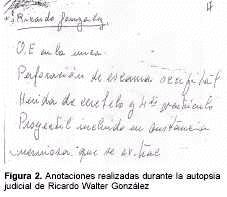 Ricardo González
O.E en la unca.
Perforación de escama occipital
Herida de cuello y
Proyectil incluido en sustancia
nerviosa que se extrae
Figura 2. Anotaciones realizadas durante la autopsia
judicial de Ricardo Walter González